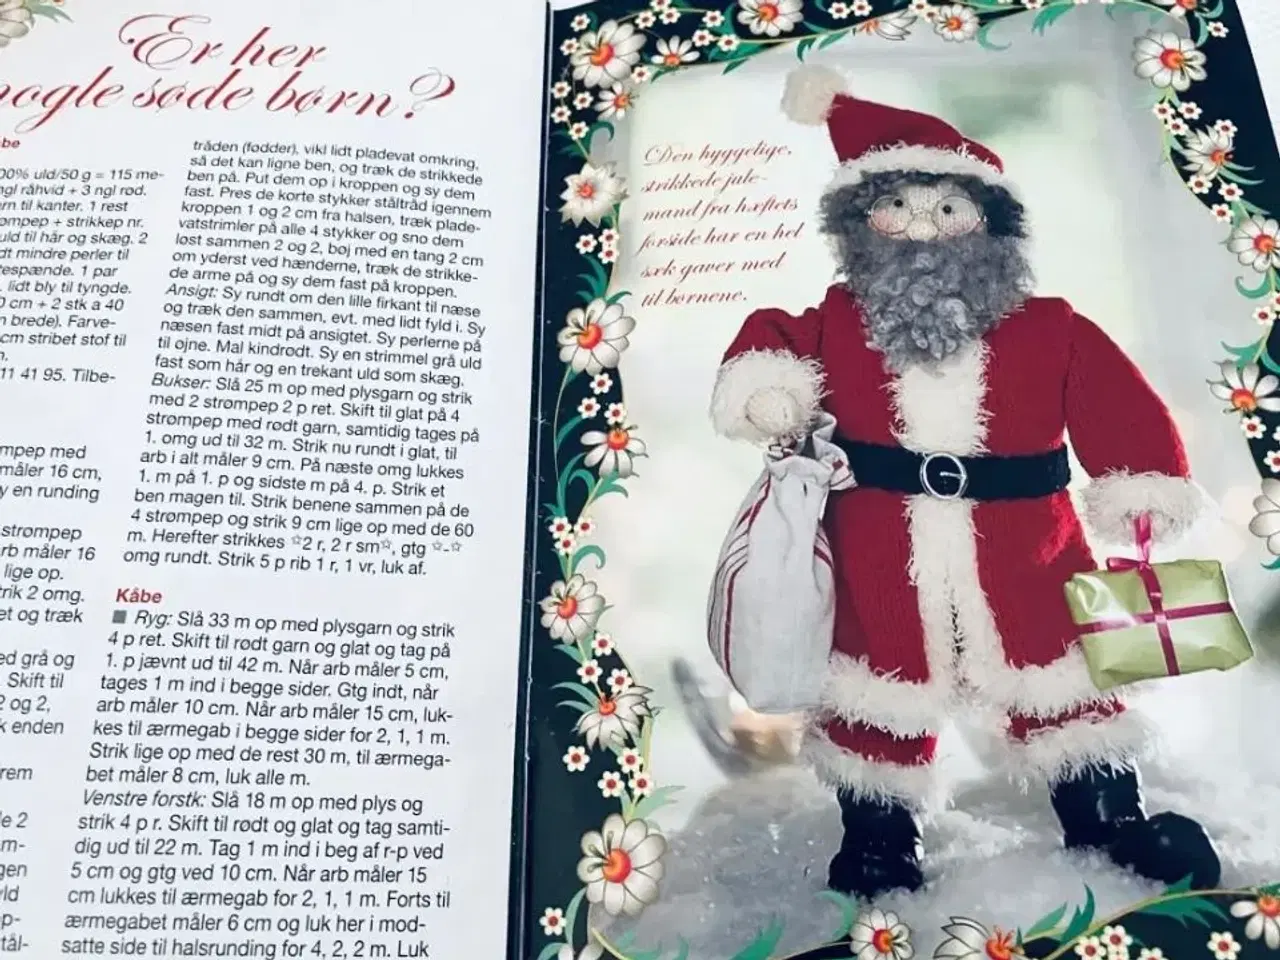 Er her
nogle søde børn?
100% uld/50 g = 115 me-
ngl råhvid + 3 ngl rød.
til kanter. 1 rest
strømpep + strikkep nr.
uld til hår og skæg. 2
mindre perler til
1 par
lidt bly til tyngde.
cm + 2 stk a 40
brede). Farve-
cm stribet stof til
11 41 95. Tilbe-
med
måler 16 cm,
sy en runding
strømpep
arb måler 16
lige op.
strik 2 omg.
og træk
med grå og
Skift til
2 og 2,
enden
2
tråden (fødder), vikl lidt pladevat omkring,
så det kan ligne ben, og træk de strikkede
ben på. Put dem op i kroppen og sy dem
fast. Pres de korte stykker ståltråd igennem
kroppen 1 og 2 cm fra halsen, træk plade-
vatstrimler på alle 4 stykker og sno dem
løst sammen 2 og 2, bøj med en tang 2 cm
om yderst ved hænderne, træk de strikke-
de arme på og sy dem fast på kroppen.
Ansigt: Sy rundt om den lille firkant til næse
og træk den sammen, evt. med lidt fyld i. Sy
næsen fast midt på ansigtet. Sy perlerne på
til øjne. Mal kindrødt. Sy en strimmel grå uld
fast som hår og en trekant uld som skæg.
Bukser: Slå 25 m op med plysgarn og strik
med 2 strømpep 2 p ret. Skift til glat på 4
strømpep med rødt garn, samtidig tages på
1. omg ud til 32 m. Strik nu rundt i glat, til
arb i alt måler 9 cm. På næste omg lukkes
1. m på 1. p og sidste m på 4. p. Strik et
ben magen til. Strik benene sammen på de
4 strømpep og strik 9 cm lige op med de 60
m. Herefter strikkes ☆2 r, 2 r sm☆, gtg ☆-☆
omg rundt. Strik 5 p rib 1 r, 1 vr, luk af.
Kåbe
■ Ryg: Slå 33 m op med plysgarn og strik
4 p ret. Skift til rødt garn og glat og tag på
1. p jævnt ud til 42 m. Når arb måler 5 cm,
tages 1 m ind i begge sider. Gtg indt, når
arb måler 10 cm. Når arb måler 15 cm, luk-
kes til ærmegab i begge sider for 2, 1, 1 m.
Strik lige op med de rest 30 m, til ærmega-
bet måler 8 cm, luk alle m.
Venstre forstk: Slå 18 m op med plys og
strik 4 p r. Skift til rødt og glat og tag samti-
dig ud til 22 m. Tag 1 m ind i beg af r-p ved
5 cm og gtg ved 10 cm. Når arb måler 15
cm lukkes til ærmegab for 2, 1, 1 m. Forts til
ærmegabet måler 6 cm og luk her i mod-
satte side til halsrunding for 4, 2, 2 m. Luk
Den hyggelige,
strikkede jule-
mand fra hæftets
forside har en hel
sæk gaver med
til børnene.